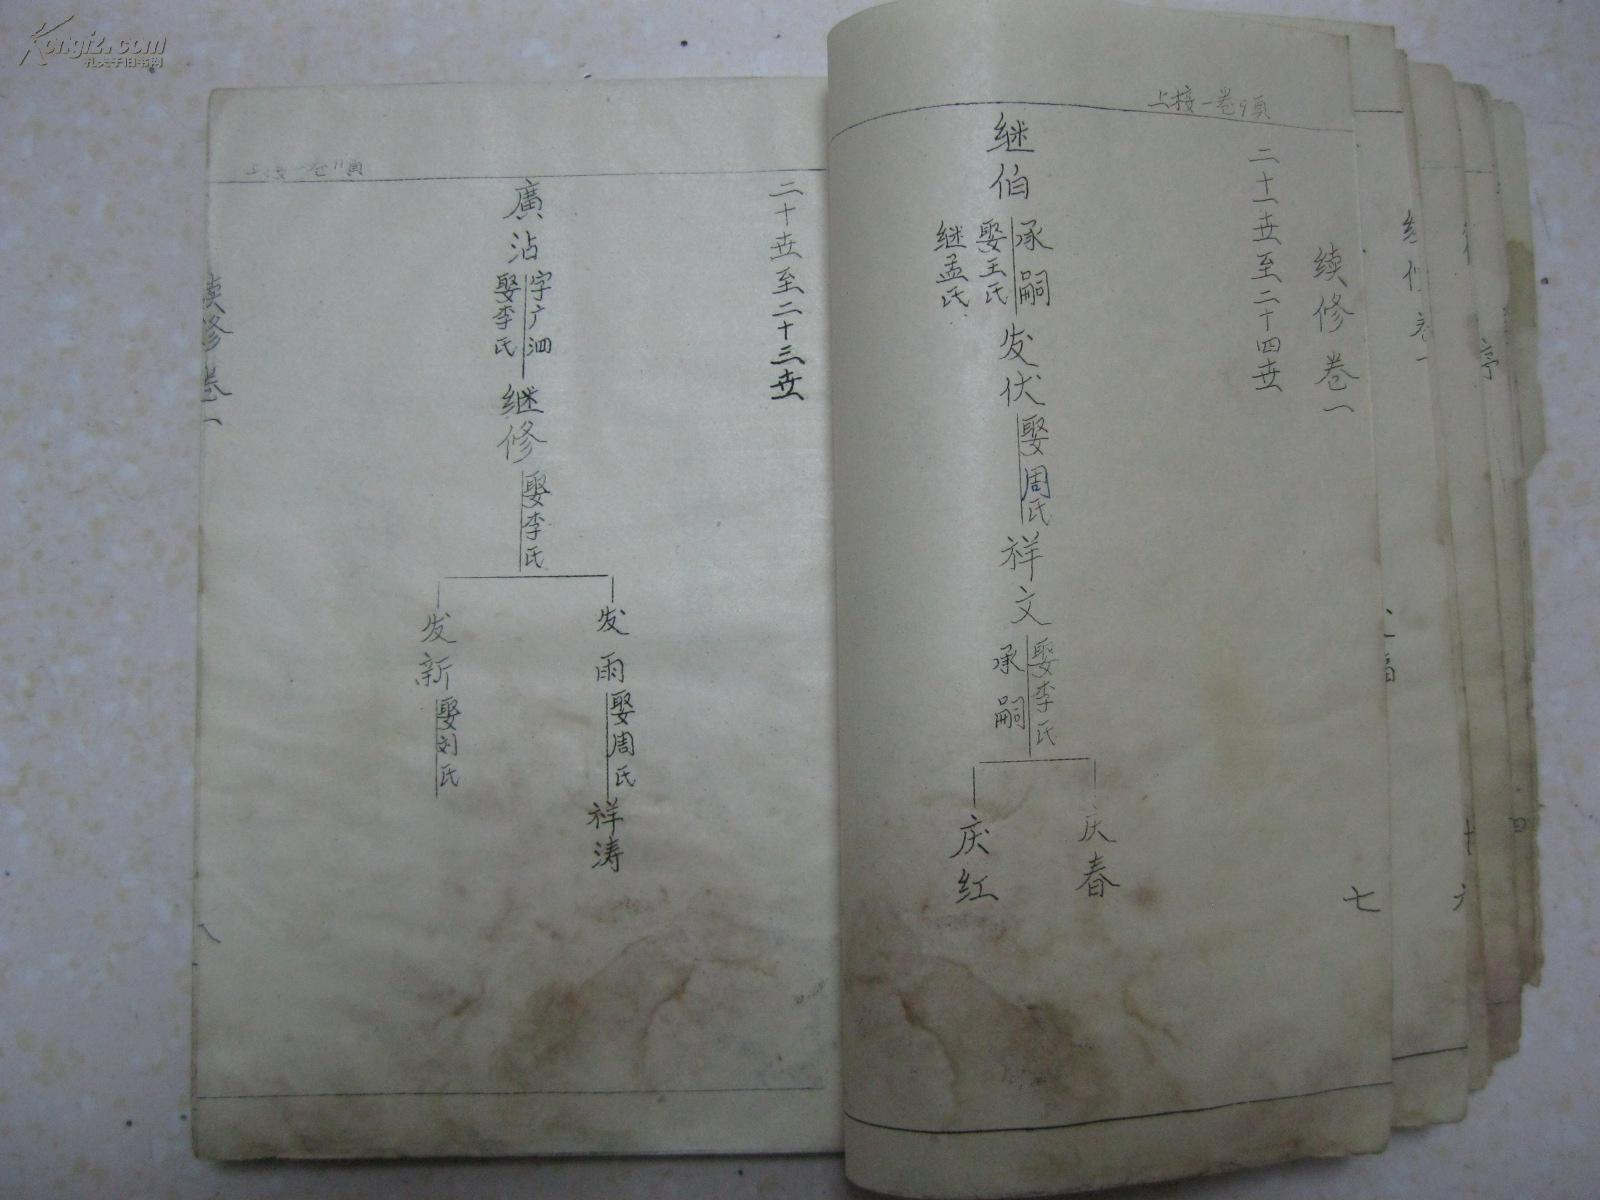 Kongfz.com
孔夫子旧书网
上接一卷9頁
续修卷一
二十一世至二十四世
继伯
承嗣
娶王氏
继孟氏
发伏
娶周氏
祥文
娶李氏
承嗣
庆春
庆红
七
上接一卷11頁
二十世至二十三世
廣沾
字广泗
娶李氏
继修
娶李氏
发雨
娶周氏
祥涛
发新
娶刘氏
续修卷一
八
续修卷一
六
序
四